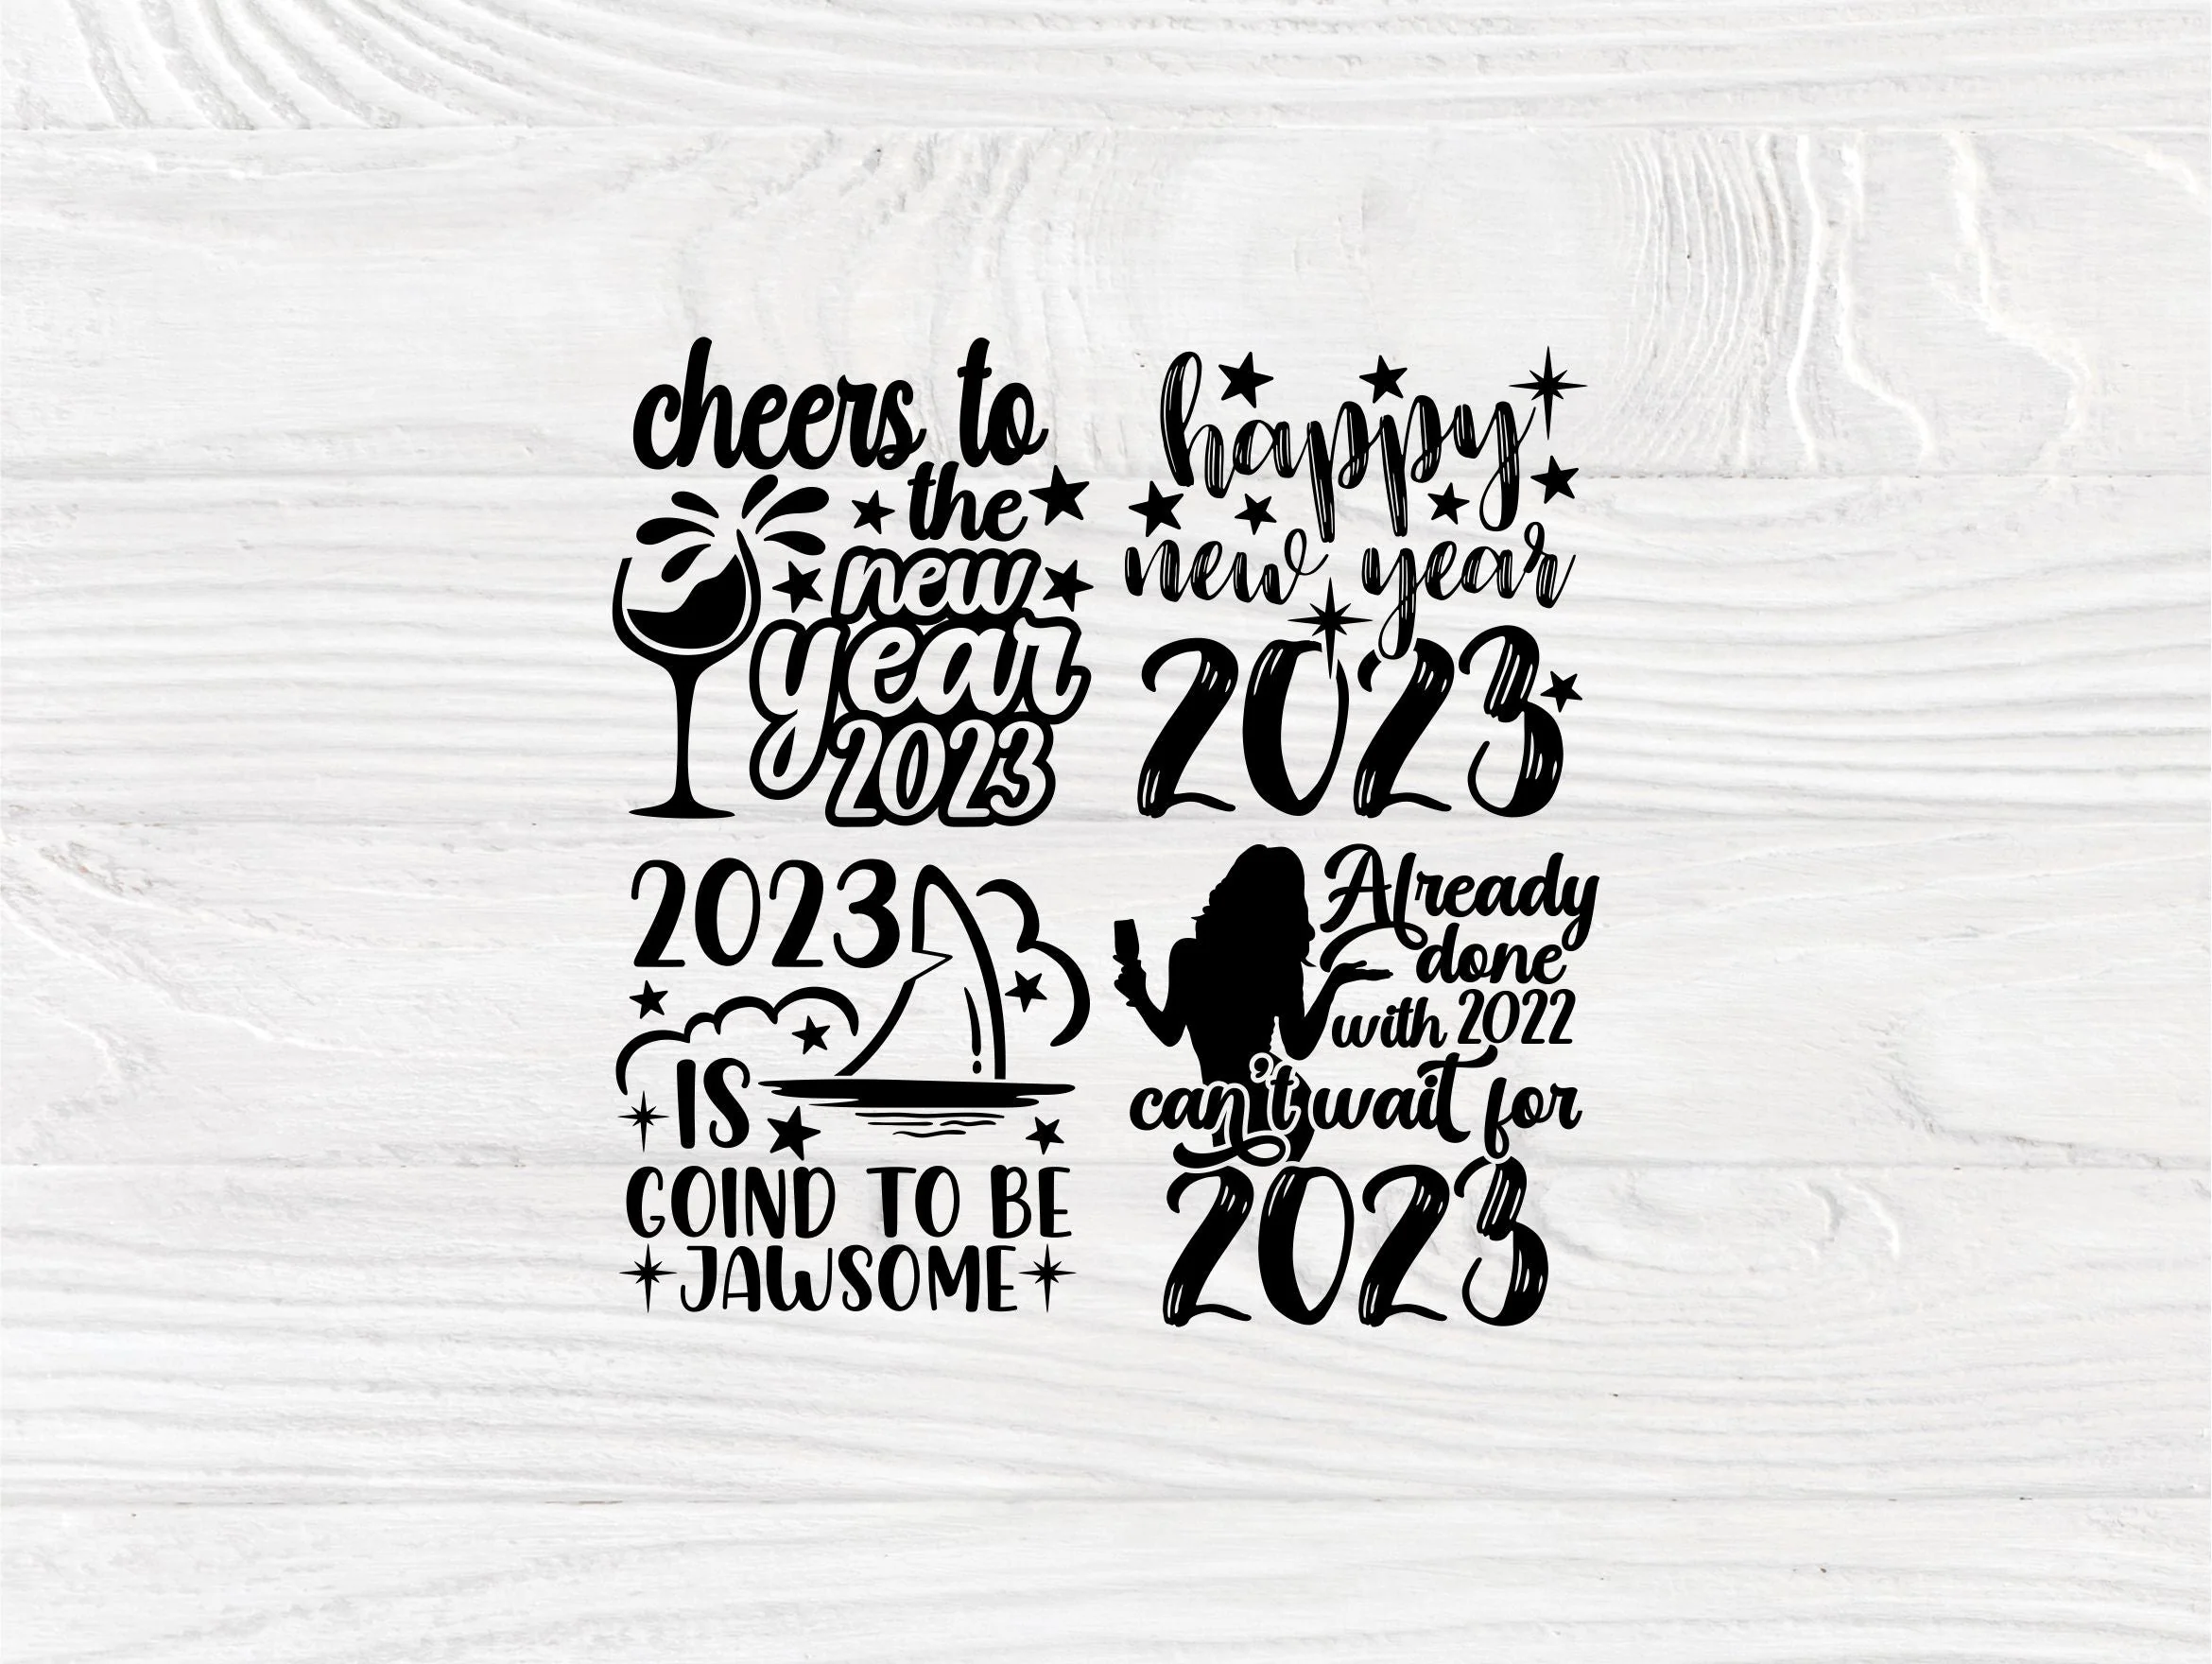 cheers to
the
new
year
2023
happy
new year
2023
2023
IS
GOIND TO BE
JAWSOME
Already
done
with 2022
can't wait for
2023